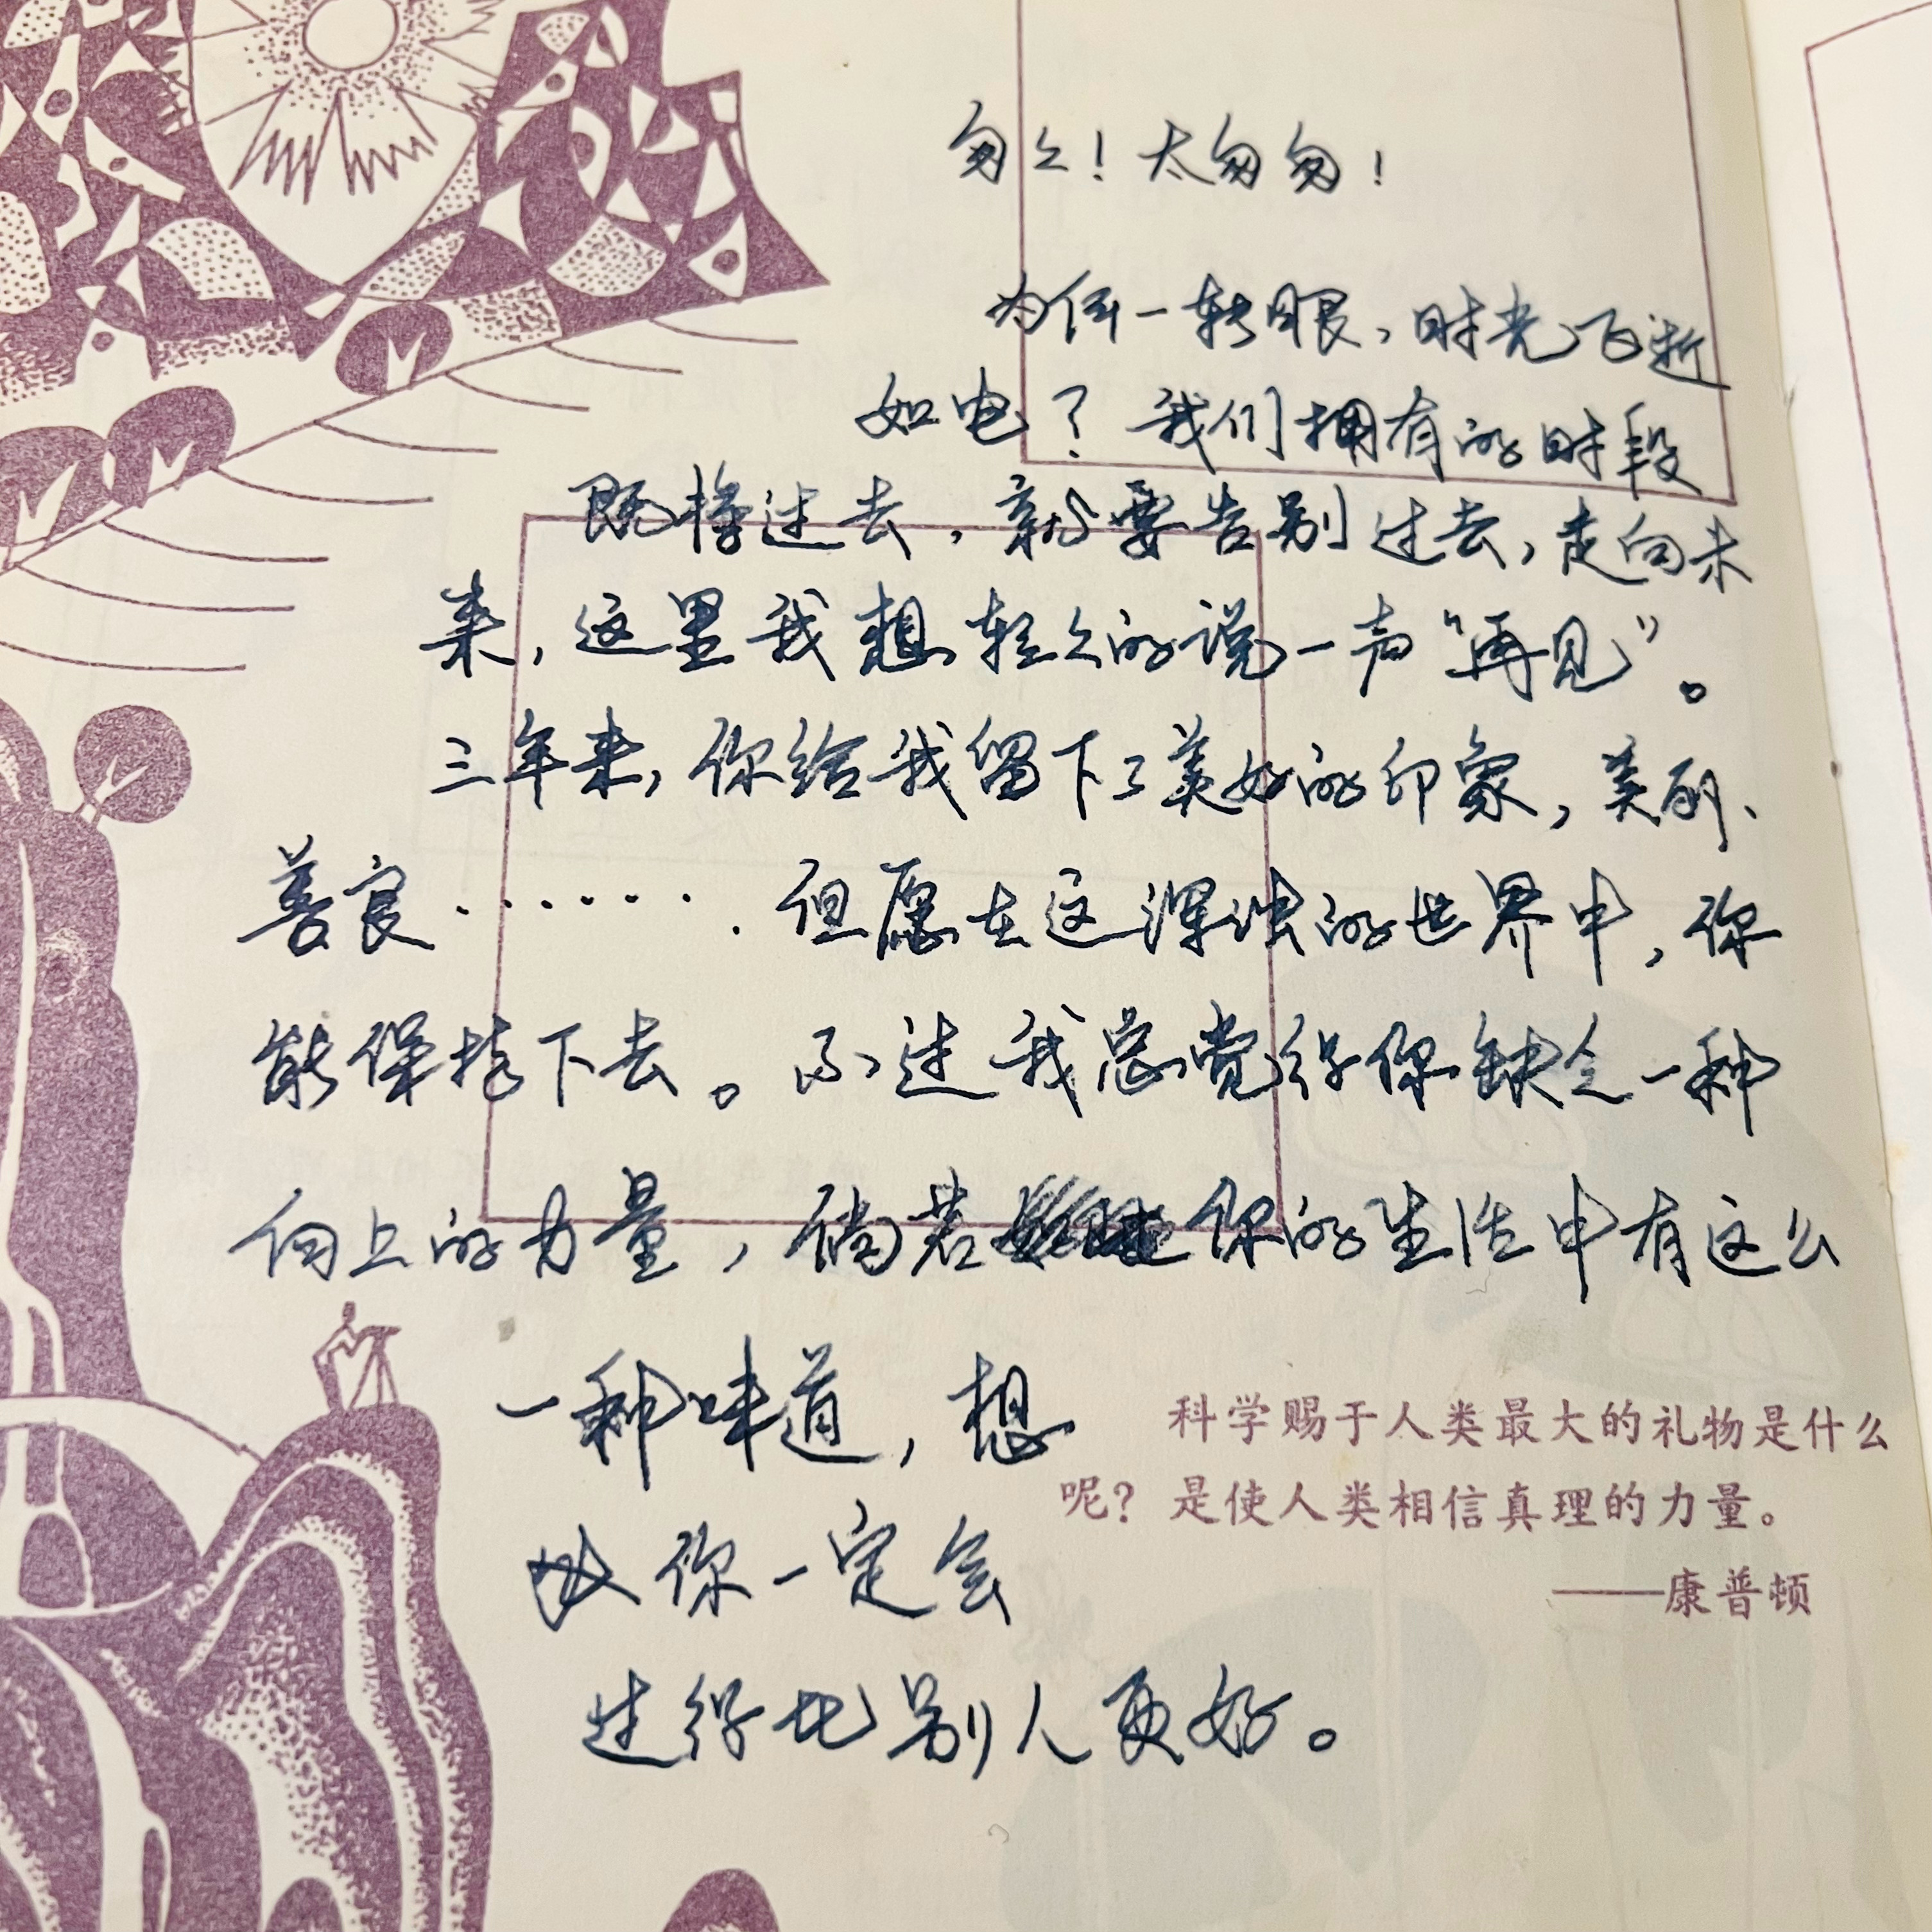 匆々！太匆匆！
为何一转眼，时光飞逝
如电？我们拥有的时段
既将过去，就要告别过去，走向未
来，这里我想轻々的说一声“再见”。
三年来，你给我留下了美好的印象，美丽、
善良·······但愿在这浑浊的世界中，你
能保持下去。不过我总觉得你缺乏一种
向上的力量，倘若你的生活中有这么
一种味道，想
你一定会
过得比别人更好。
科学赐于人类最大的礼物是什么
呢？是使人类相信真理的力量。
——康普顿